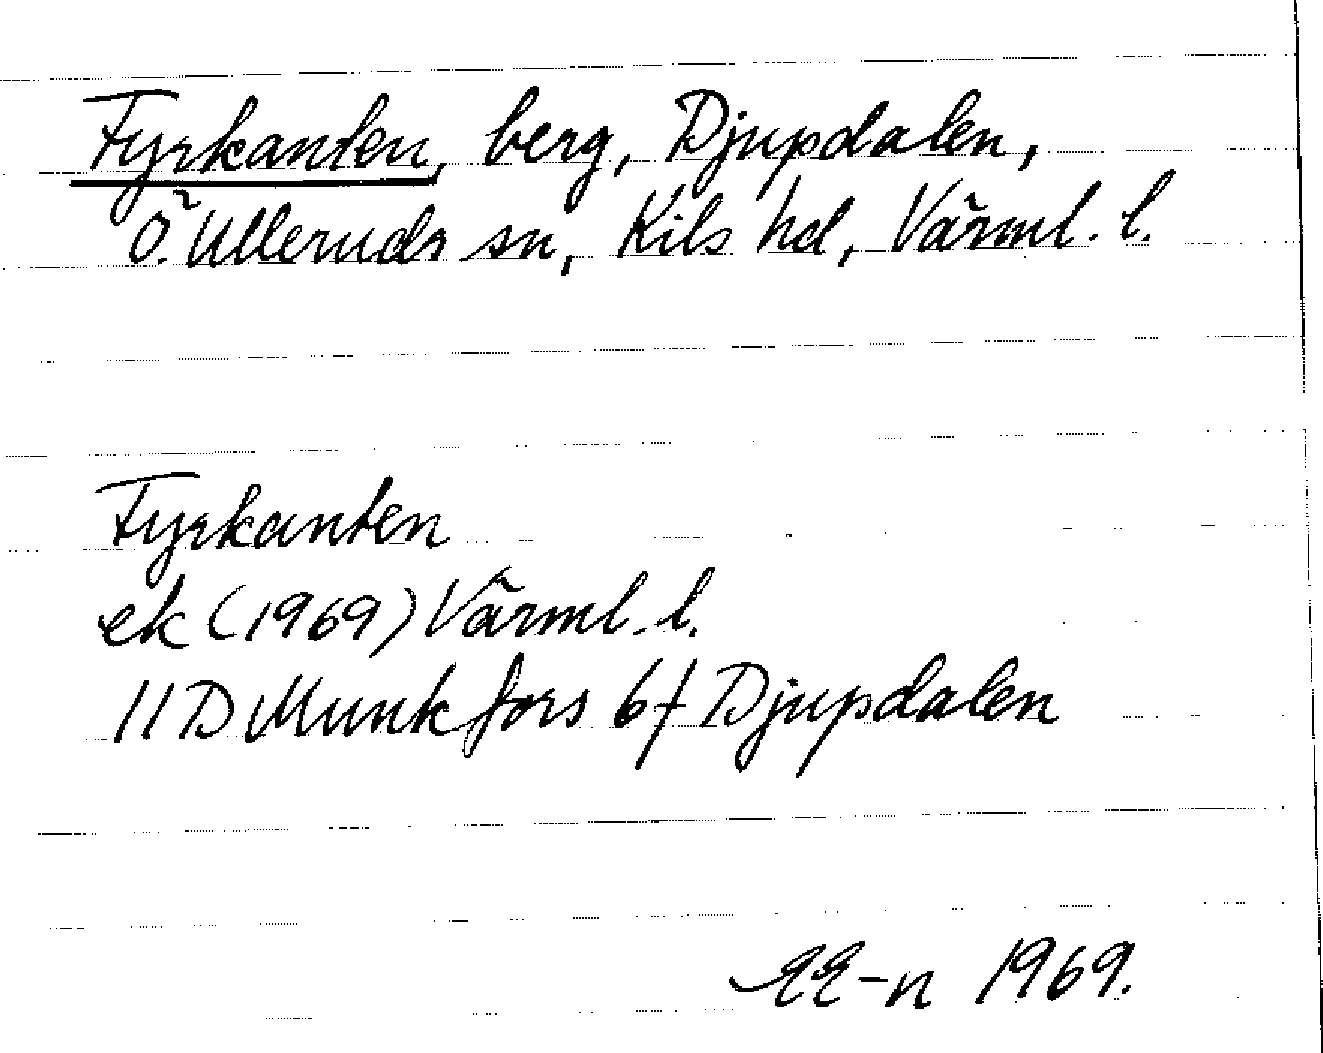 Fyrkanten, berg, Djupdalen,
Ö. Ulleruds sn, Kils hd, Värml. l.
Fyrkanten
ek (1969) Värml. l.
11D Munkfors 6f Djupdalen
EE-n 1969.